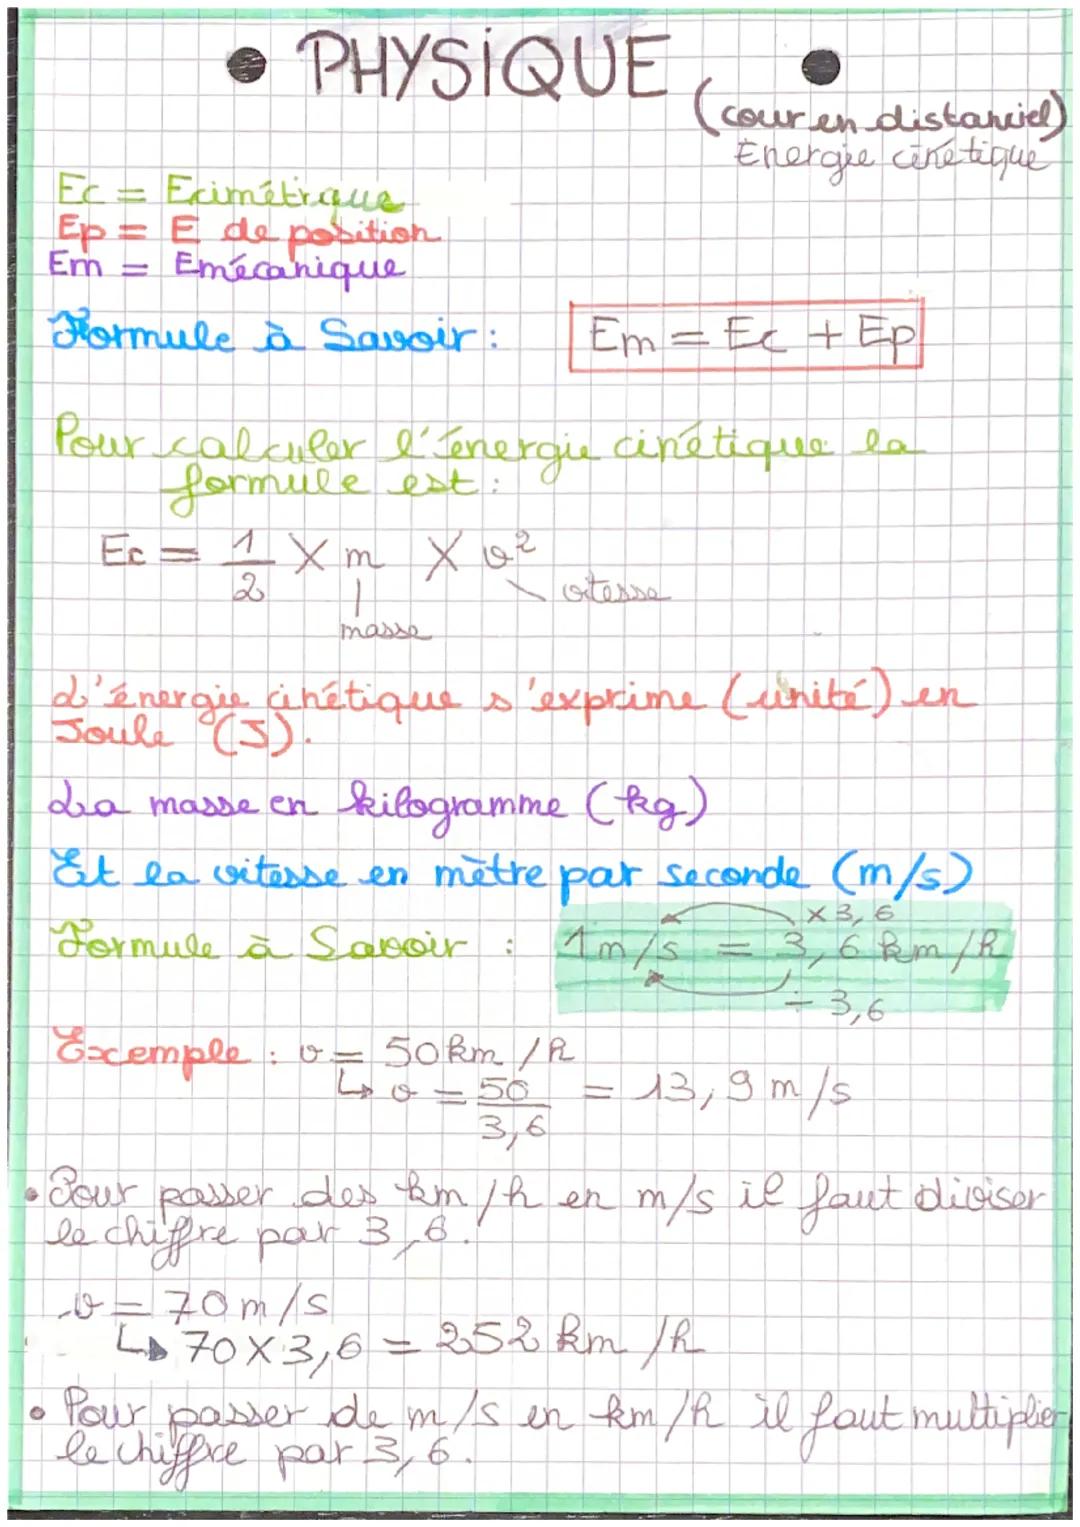 • PHYSIQUE •
(cour en distanciel)
Energie cinétique
Ec = Ecinétique
Ep = E de position
Em = Emécanique
Formule à Savoir : Em = Ec + Ep
Pour calculer l'énergie cinétique la
formule est :
Ec = 1/2 X m X v²
vitesse
masse
L'énergie cinétique s'exprime (unité) en
Joule (J).
La masse en kilogramme (kg)
Et la vitesse en mètre par seconde (m/s)
x 3,6
Formule à Savoir : 1m/s = 3,6 km/h
÷ 3,6
Exemple : v = 50km/h
↳ v = 50/3,6 = 13,9 m/s
• Pour passer des km/h en m/s il faut diviser
le chiffre par 3,6.
v = 70m/s
↳ 70X3,6 = 252 km/h
• Pour passer de m/s en km/h il faut multiplier
le chiffre par 3,6.